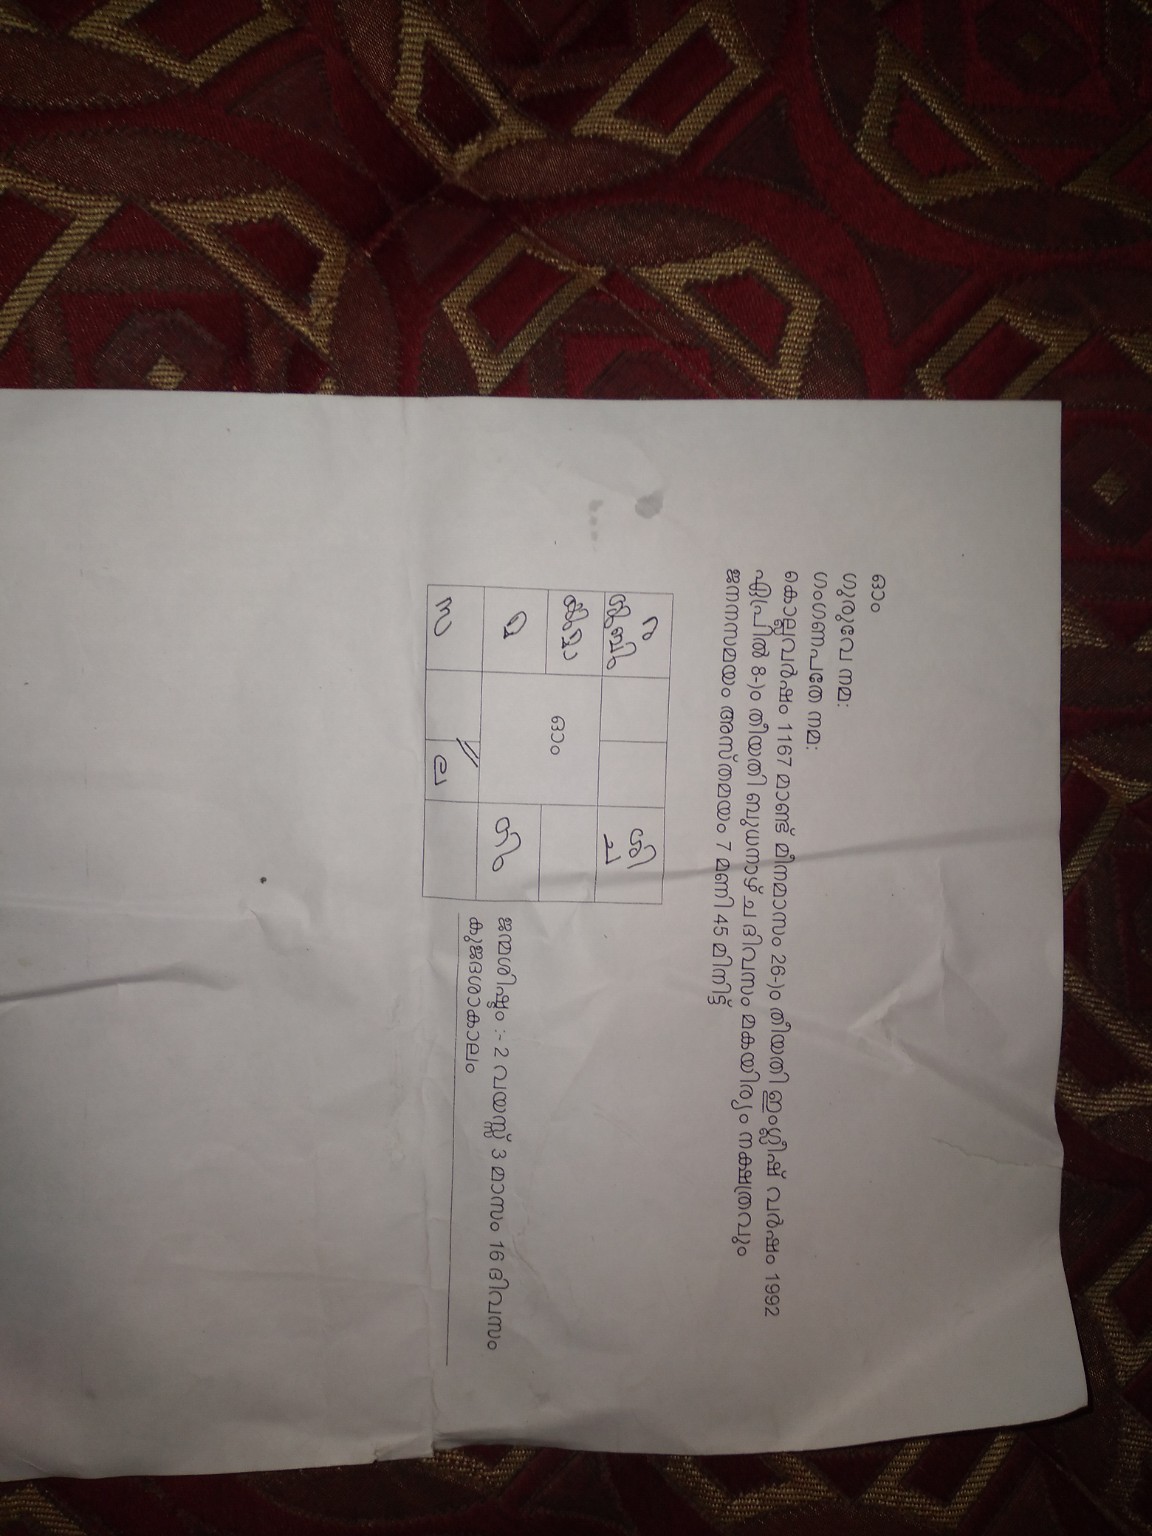 ഓം
ഗുരുവേ നമ:
ഗംഗണപതേ നമ:
കൊല്ലവർഷം 1167 മാണ്ട് മീനമാസം 26-ാ൦ തീയതി ഇംഗ്ലീഷ് വർഷം 1992
ഏപ്രിൽ 8-ാ൦ തീയതി ബുധനാഴ്ച ദിവസം മകയിര്യം നക്ഷത്രവും
ജനനസമയം അസ്തമയം 7 മണി 45 മിനിട്ട്
ര
ശി
ച
ഓം
മ
ഗു
സ
ല
ജന്മശിഷ്ടം :- 2 വയസ്സ് 3 മാസം 16 ദിവസം
കുജദശാകാലം